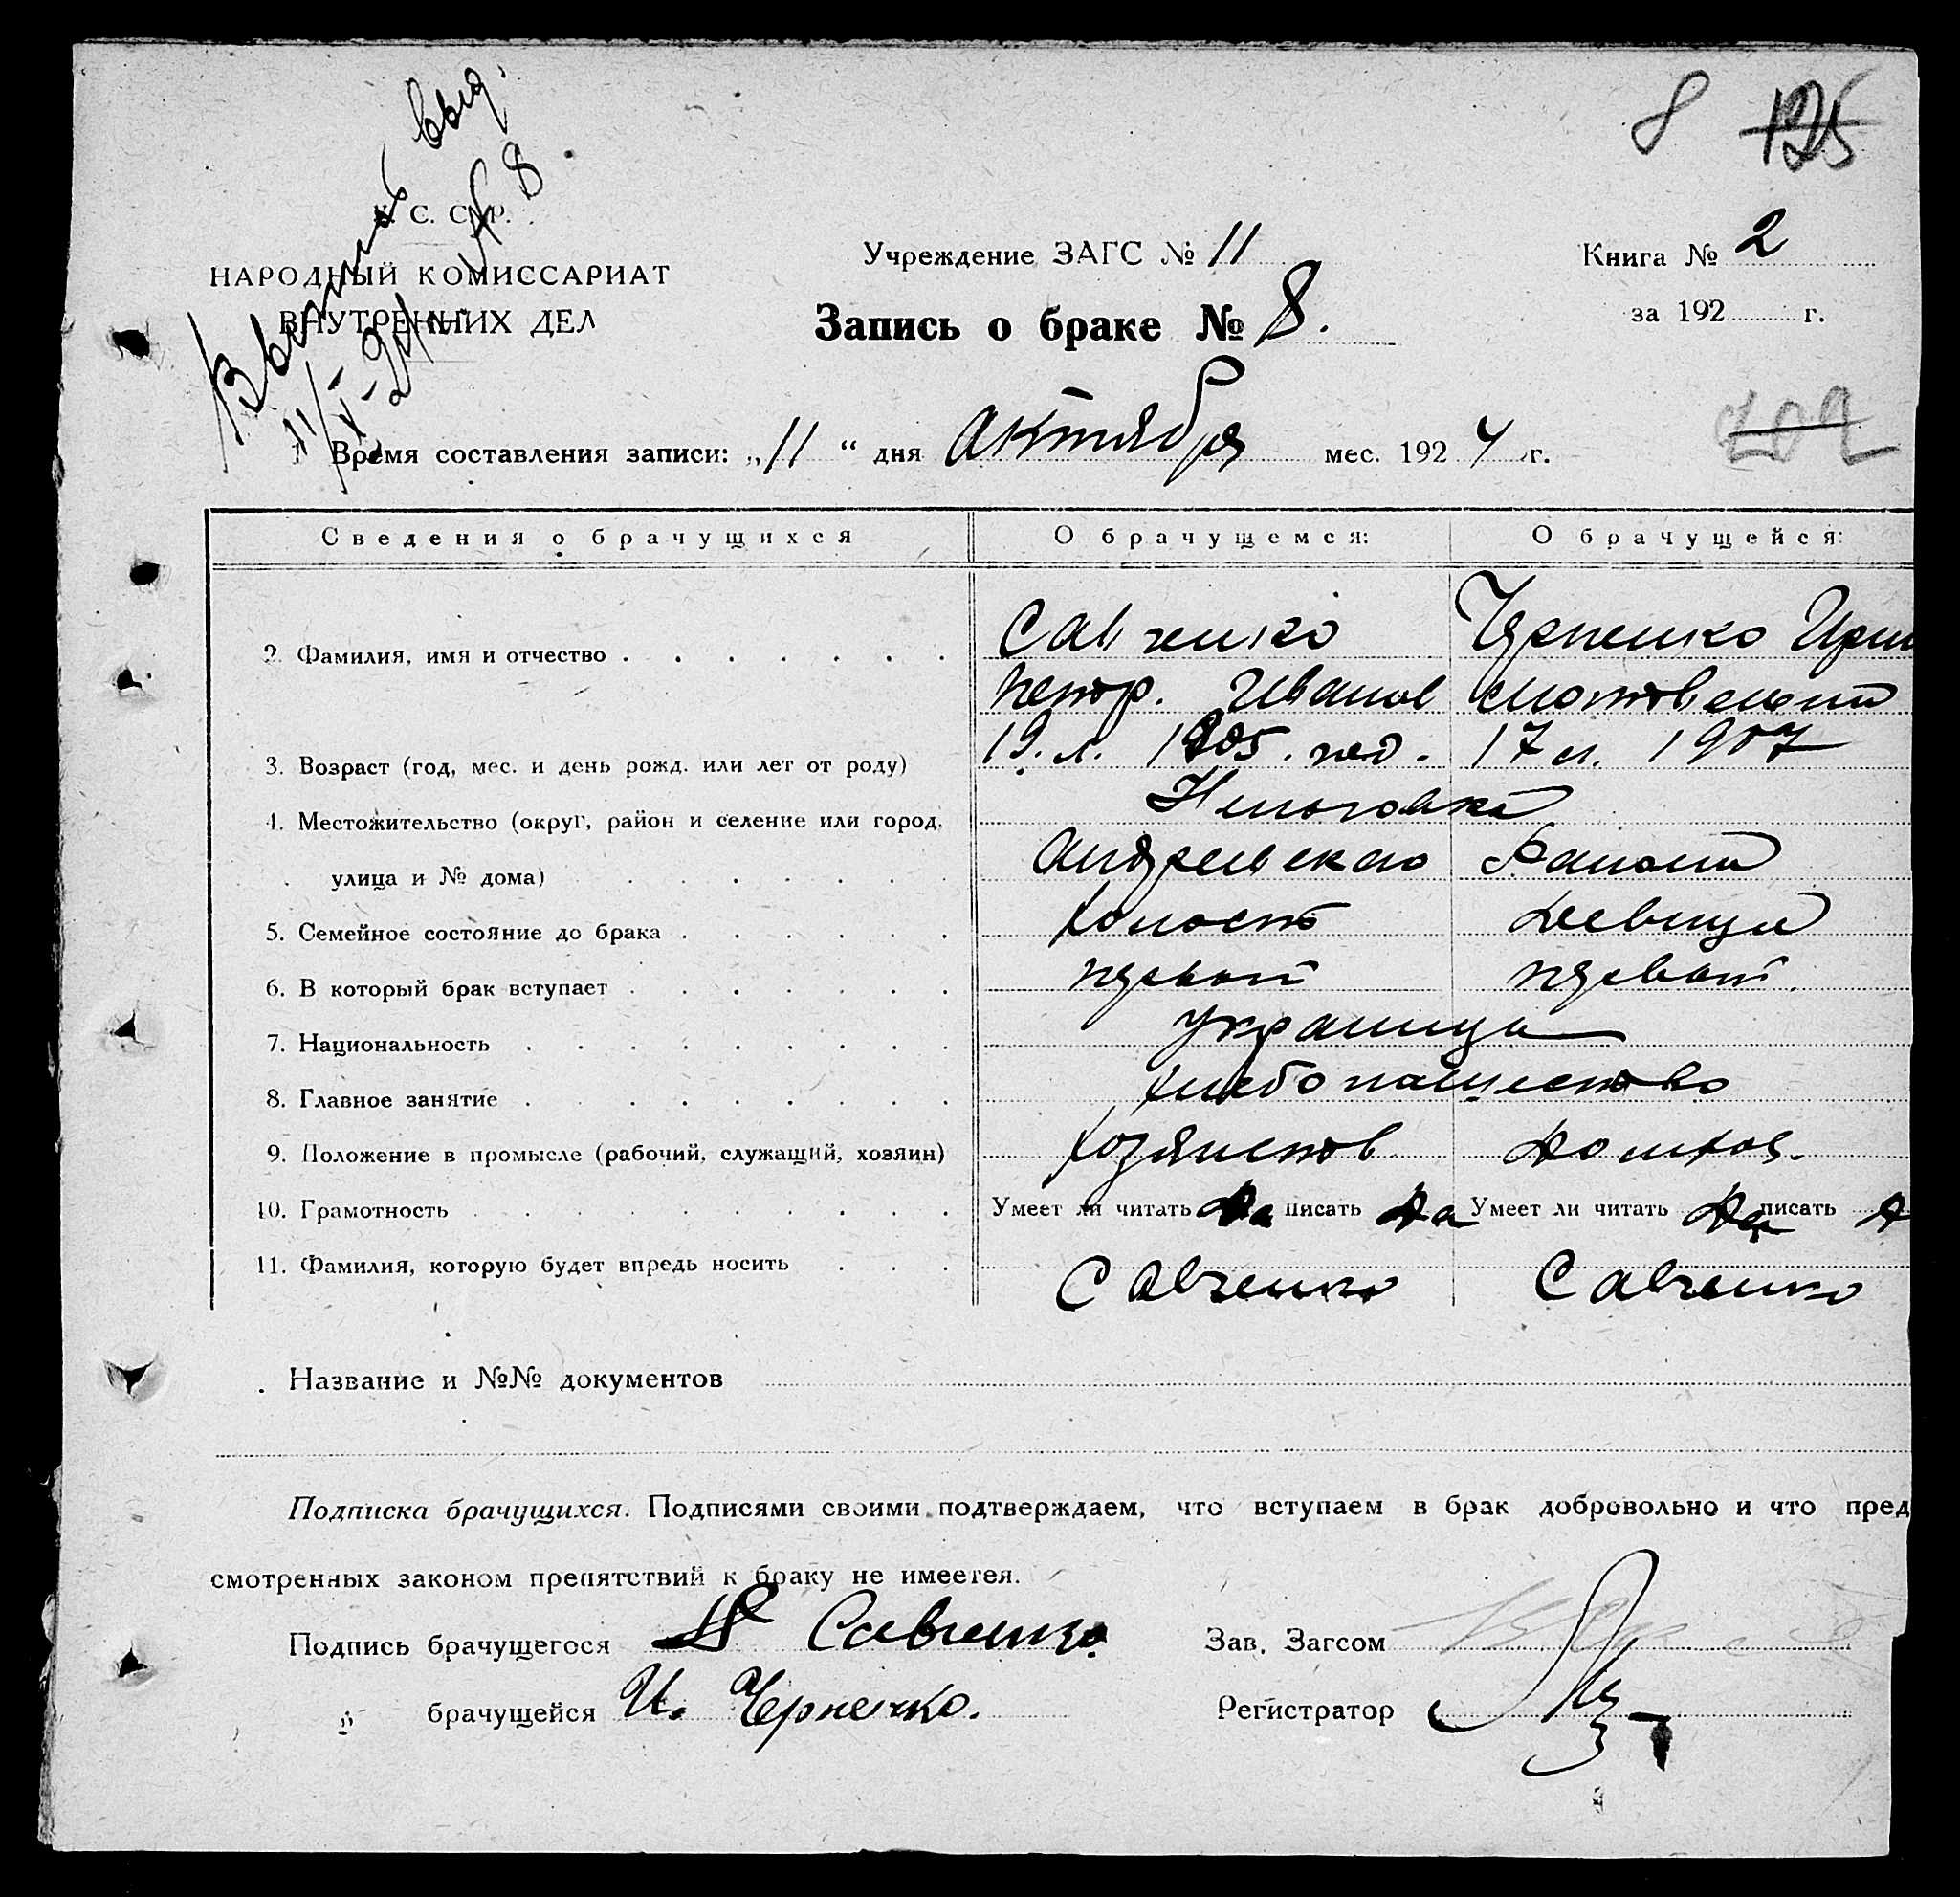 8 125
Выпись выд.
11/X-24 № 8
У. С. С. Р.
НАРОДНЫЙ КОМИССАРИАТ
ВНУТРЕННИХ ДЕЛ
Учреждение ЗАГС № 11
Книга № 2
Запись о браке № 8.
за 192 г.
202
1 Время составления записи: „11“ дня Октября мес. 1924 г.
Сведения о брачущихся О брачущемся: О брачущейся:
2. Фамилия, имя и отчество Савченко Чрненко Ирин
Петр. Иванов
3. Возраст (год, мес. и день рожд. или лет от роду) 19. л. 1905. 17 л. 1907
4. Местожительство (округ, район и селение или город,
улица и № дома) Андреевскаго Району
5. Семейное состояние до брака холост девица
6. В который брак вступает первый первый.
7. Национальность украинцы
8. Главное занятие хлебопашество
9. Положение в промысле (рабочий, служащий, хозяин) домхоз.
10. Грамотность Умеет ли читать да писать да Умеет ли читать да писать д
11. Фамилия, которую будет впредь носить Савченко Савченко
Название и №№ документов
Подписка брачущихся. Подписями своими подтверждаем, что вступаем в брак добровольно и что пред
смотренных законом препятствий к браку не имеется.
Подпись брачущегося Савченко. Зав. Загсом
„ брачущейся И. Черненко. Регистратор